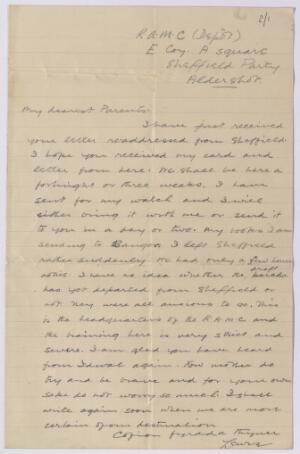 2/1
R.A.M.C (Depôt)
E Coy. A Square
Sheffield Party
Aldershot.
My dearest Parents
I have just received
your letter readdressed from Sheffield.
I hope you received my card and
letter from here. We shall be here a
fortnight or three weeks. I have
sent for my watch and I will
either bring it with me or send it
to you in a day or two. My books I am
sending to Bangor. I left Sheffield
rather suddenly. We had only a few hours
notice. I have no idea whether the draft
has yet departed from Sheffield or
not. They were all anxious to go. This
is the headquarters of the R.A.M.C and
the training here is very strict and
severe. I am glad you have heard
from Idwal again. Now mother do
try and be brave and for your own
sake do not worry so much. I shall
write again soon when we are more
certain of our destination.
Cofion
Lewis